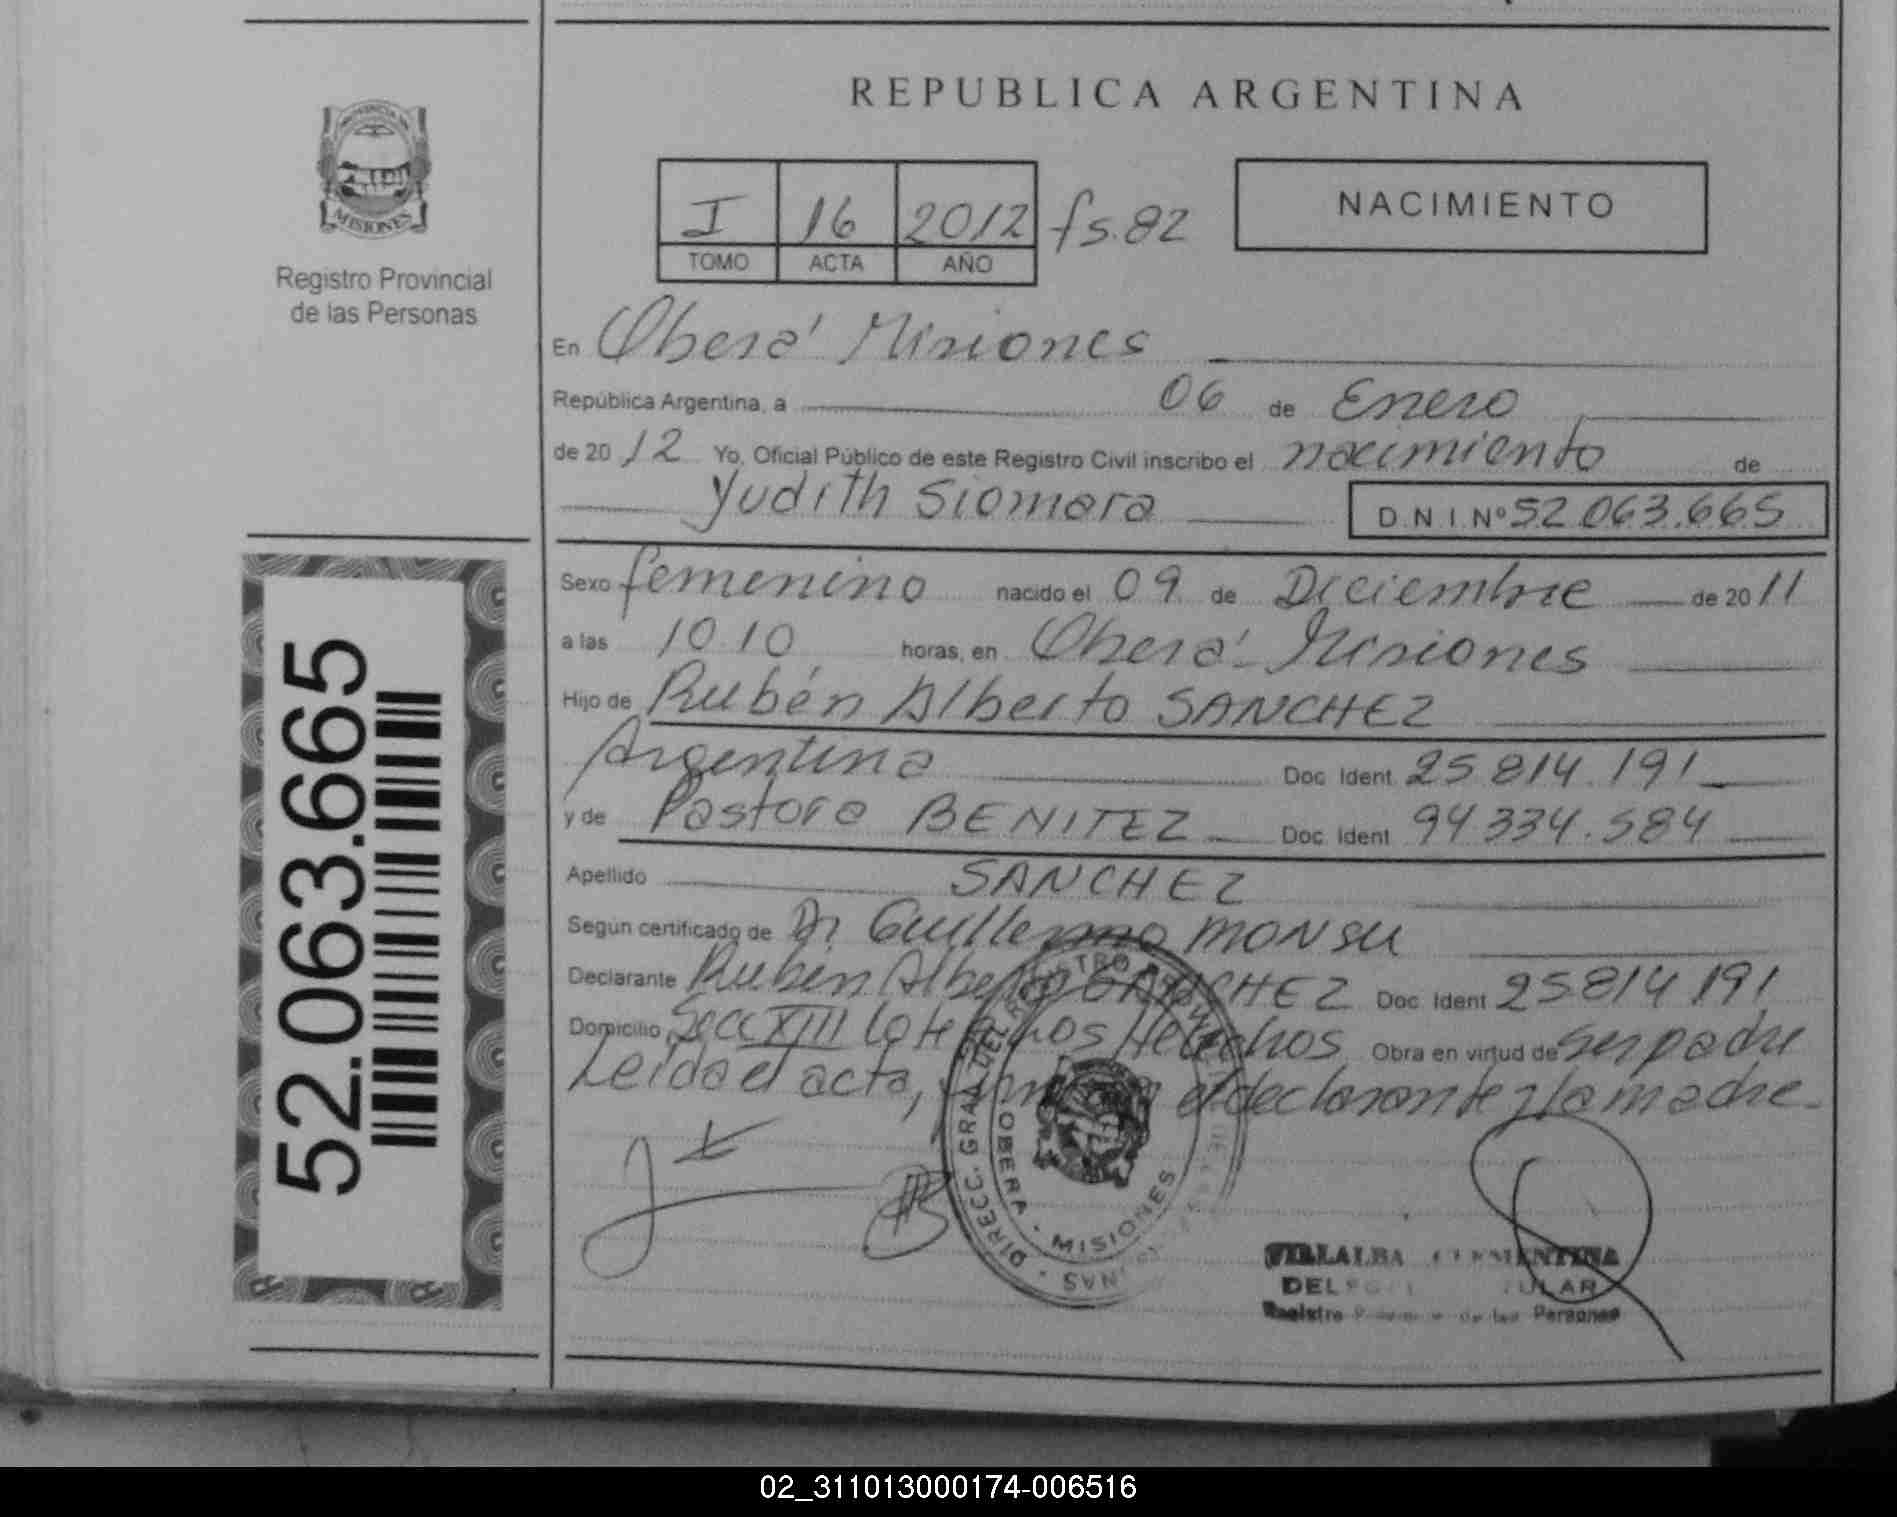 REPUBLICA ARGENTINA
PROVINCIA DE
MISIONES
Registro Provincial
de las Personas
I 16 2012 fs. 82
TOMO ACTA AÑO
NACIMIENTO
En Oberá Misiones
República Argentina, a 06 de Enero
de 2012 Yo, Oficial Público de este Registro Civil inscribo el nacimiento de
Yudith Siomara D.N.I.Nº 52.063.665
Sexo femenino nacido el 09 de Diciembre de 2011
a las 10.10 horas, en Oberá - Misiones
Hijo de Rubén Alberto SANCHEZ
Argentina Doc. Ident. 25.814.191
y de Pastora BENITEZ Doc. Ident. 94334.584
Apellido SANCHEZ
Según certificado de Dr Guillermo MONSU
Declarante Rubén Alberto SANCHEZ Doc. Ident. 25814191
Domicilio Secc XIII Lote Los Helechos Obra en virtud de ser padre
Leída el acta, el declarante y la madre.
52.063.665
DIRECC. GRAL. DEL REGISTRO PROVINCIAL DE LAS PERSONAS
OBERA - MISIONES
VILLALBA CLEMENTINA
Registro de las Personas
02_311013000174-006516